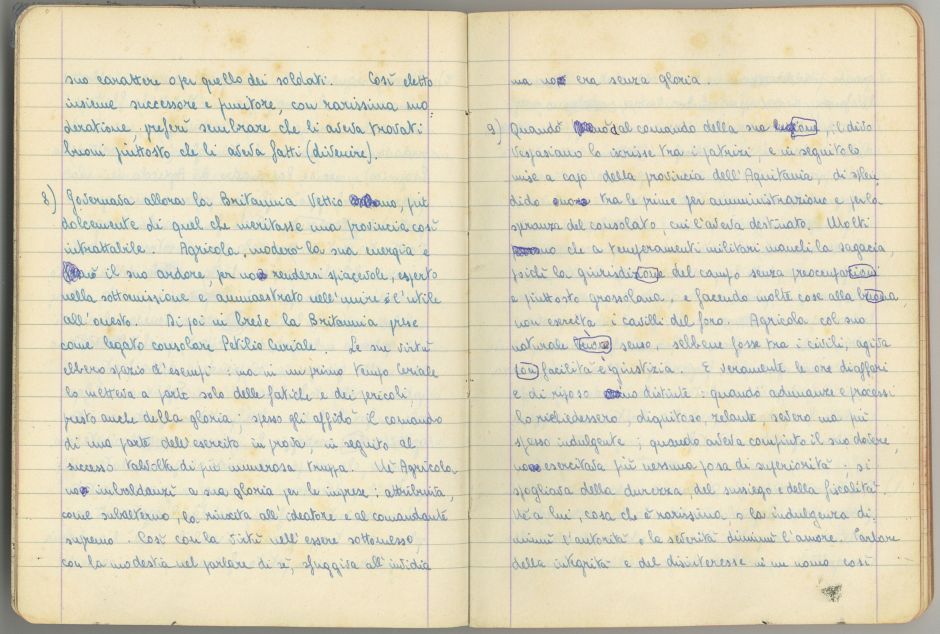 suo carattere o per quello dei soldati. Così eletto
insieme successore e punitore, con rarissima mo
derazione, preferì sembrare che li aveva trovati
buoni piuttosto che li aveva fatti (divenire).
8) Governava allora la Britannia Vettio, più
dolcemente di quel che meritasse una provincia così
intrattabile. Agricola moderò la sua energia e
il suo ardore, per non rendersi spiacevole, esperto
nella sottomissione e ammaestrato nell'unire l'utile
all'onesto. Di poi in breve la Britannia prese
come legato consolare Petilio Ceriale. Le sue virtù
ebbero spazio d'esempi: ma in un primo tempo Ceriale
lo metteva a parte solo delle fatiche e dei pericoli,
presto anche della gloria; spesso gli affidò il comando
di una parte dell'esercito in prova, in seguito al
successo talvolta di più numerosa truppa. Nè Agricola
non imbaldanzì a sua gloria per le imprese; attribuiva,
come subalterno, la riuscita all'ideatore e al comandante
supremo. Così con la virtù nell'essere sottomesso,
con la modestia nel parlare di sè, sfuggiva all'invidia
ma non era senza gloria.
9) Quando dal comando della sua legione, il divo
Vespasiano lo iscrisse tra i patrizi, e in seguito lo
mise a capo della provincia dell'Aquitania, di splen
dido onore tra le prime per amministrazione e per la
speranza del consolato, cui l'aveva destinato. Molti
che a temperamenti militari manchi la sagacia,
poichè la giurisdizione del campo senza preoccupazioni
e piuttosto grossolana, e facendo molte cose alla buona,
non esercita i cavilli del foro. Agricola col suo
naturale buon senso, sebbene fosse tra i civili, agiva
con facilità e giustizia. E veramente le ore di affari
e di riposo distinte: quando adunanze e processi
lo richiedessero, dignitoso, zelante, severo ma più
spesso indulgente; quando aveva compiuto il suo dovere,
non esercitava più nessuna posa di superiorità: si
spogliava della durezza, del sussiego e della fiscalità.
Nè a lui, cosa che è rarissima, o la indulgenza di
minuì l'autorità o la severità diminuì l'amore. Parlare
della integrità e del disinteresse in un uomo così